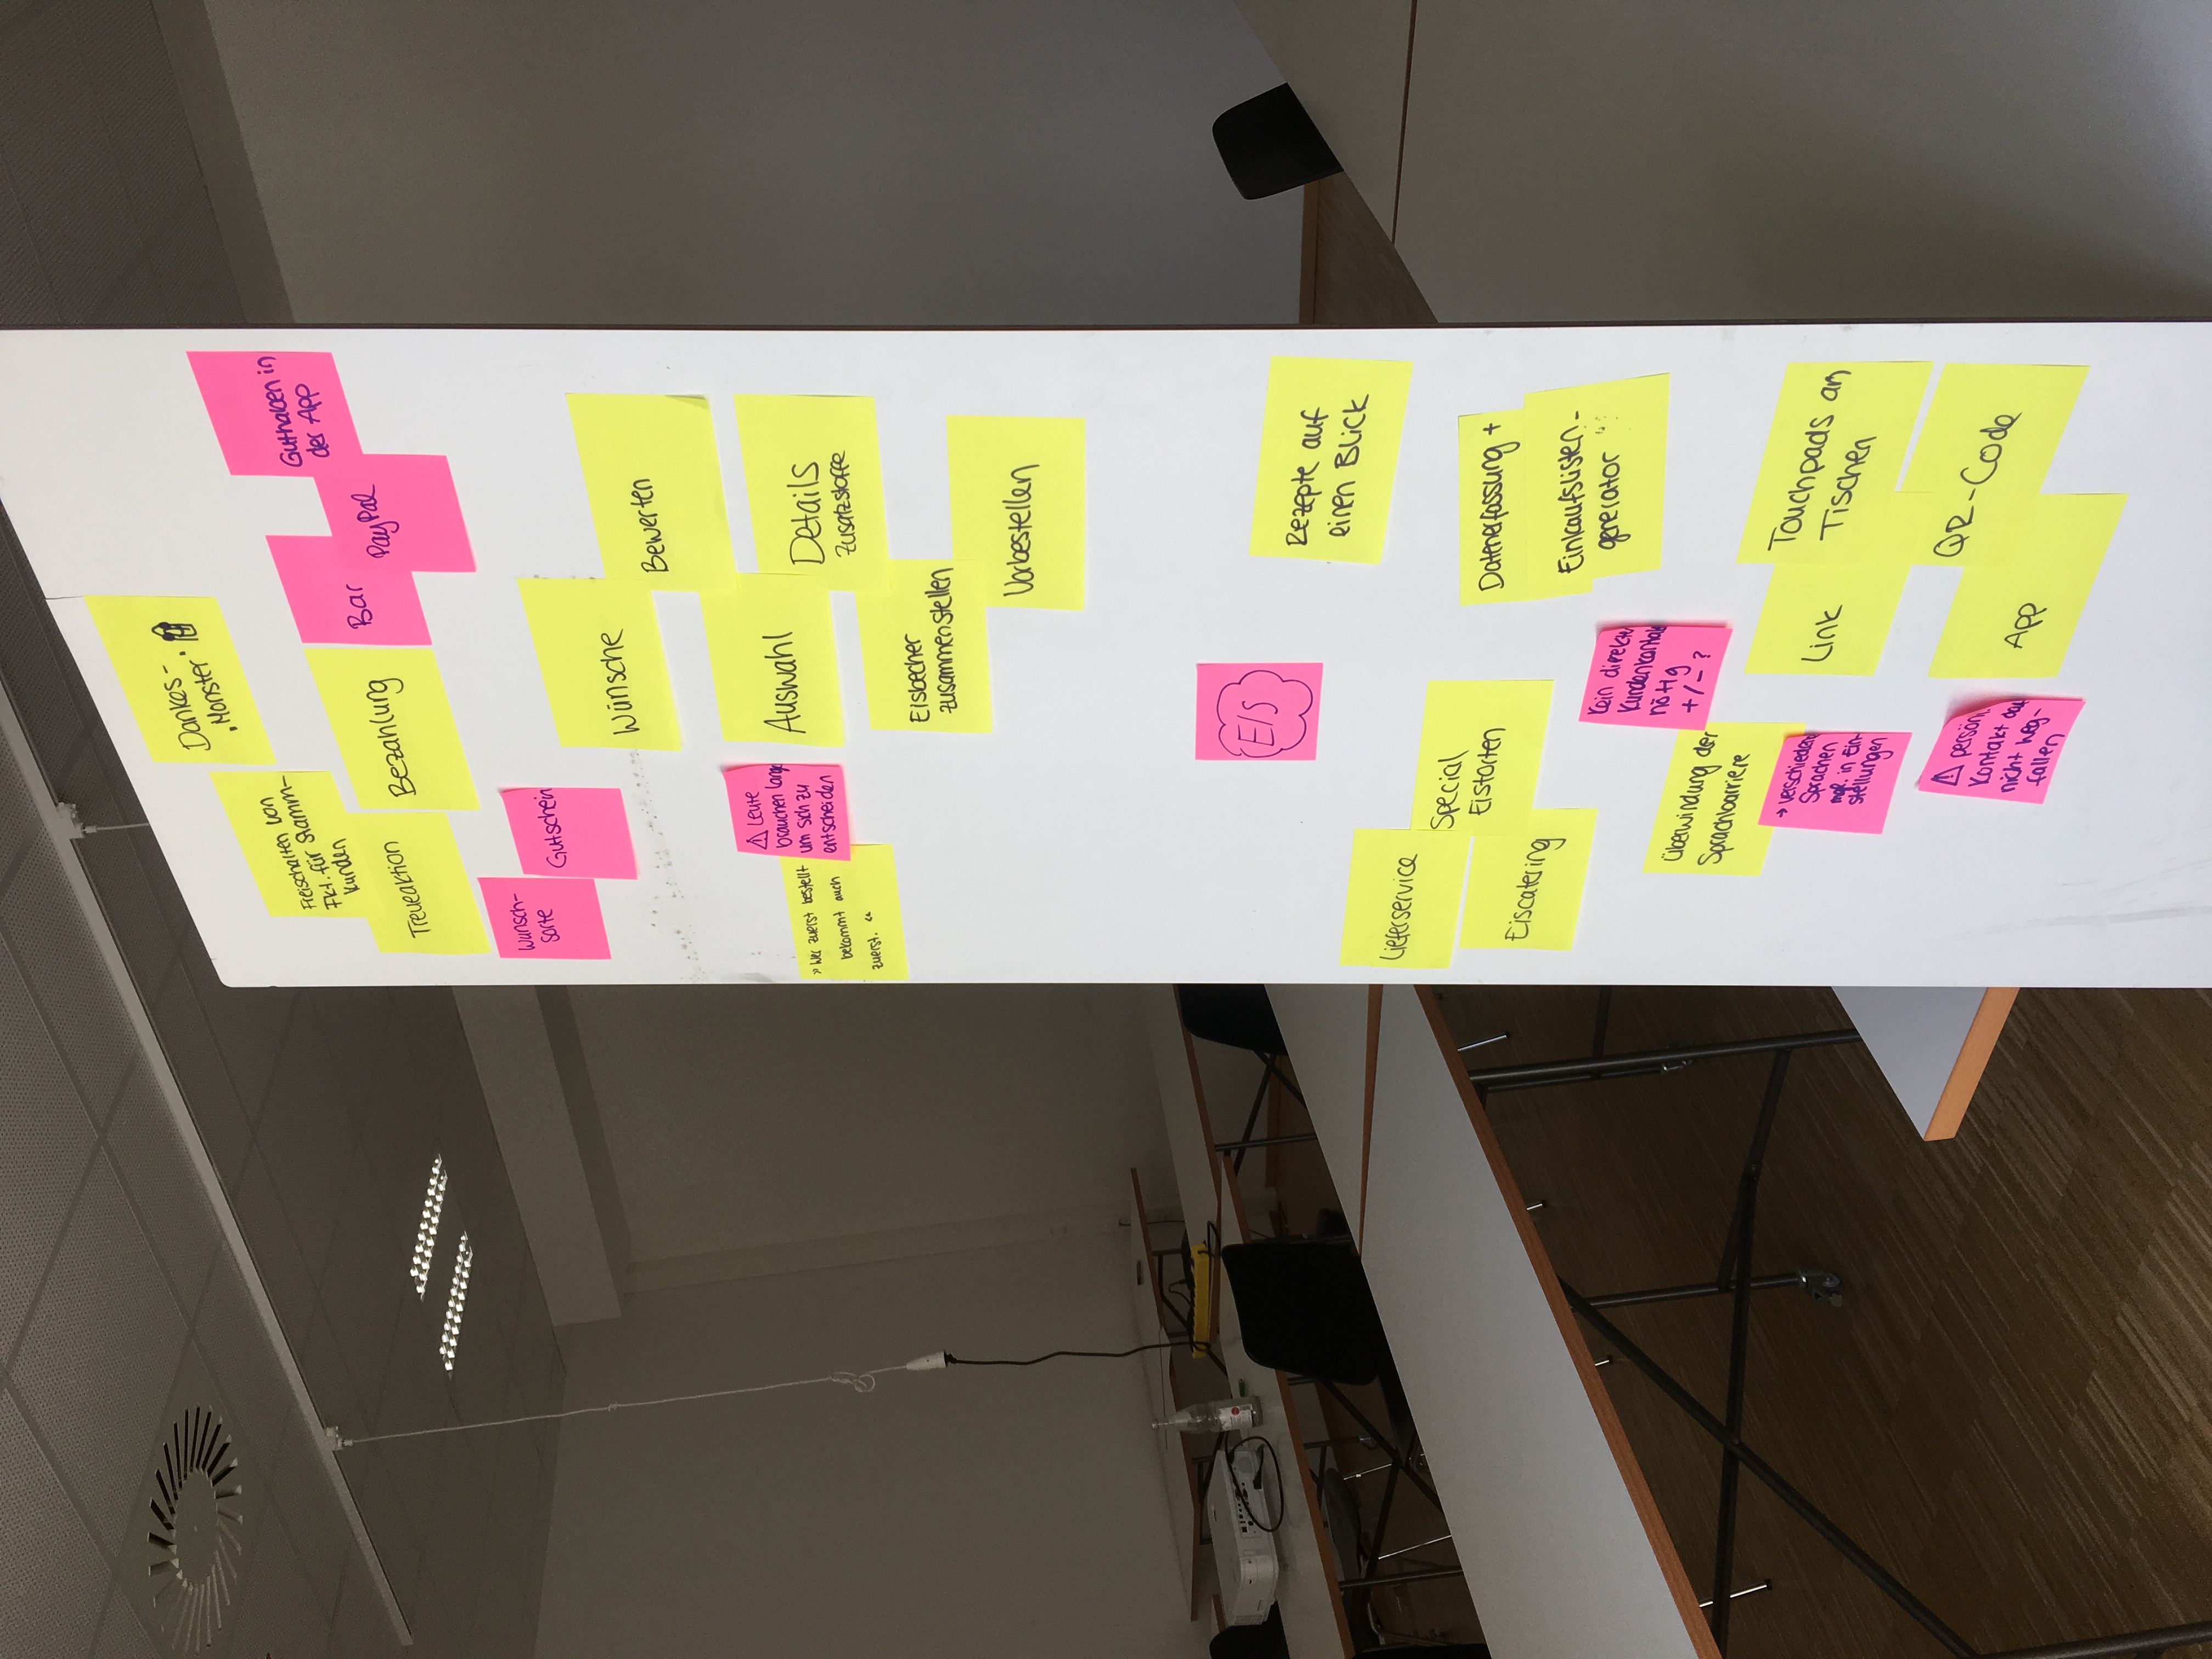 Dankes-
„Monster"
Freischalten von
Fkt. für Stamm-
kunden
Treueaktion
Bezahlung
Bar
PayPal
Guthaben in
der App
Wunsch-
sorte
Gutschein
Wünsche
Bewerten
⚠ Leute
brauchen lange
um sich zu
entscheiden
»Wer zuerst bestellt
bekommt auch
zuerst. «
Auswahl
Details
Zusatzstoffe
Eisbecher
zusammenstellen
Vorbestellen
EIS
Rezepte auf
einen Blick
Lieferservice
Special
Eistorten
Eiscatering
Datenerfassung +
Einkaufslisten-
generator
Kein direkter
Kundenkontakt
nötig
+/- ?
Überwindung der
Sprachbarriere
→ verschiedene
Sprachen
mgl. in Ein-
stellungen
Link
Touchpads an
Tischen
QR-Code
App
⚠ persönl.
Kontakt darf
nicht weg-
fallen